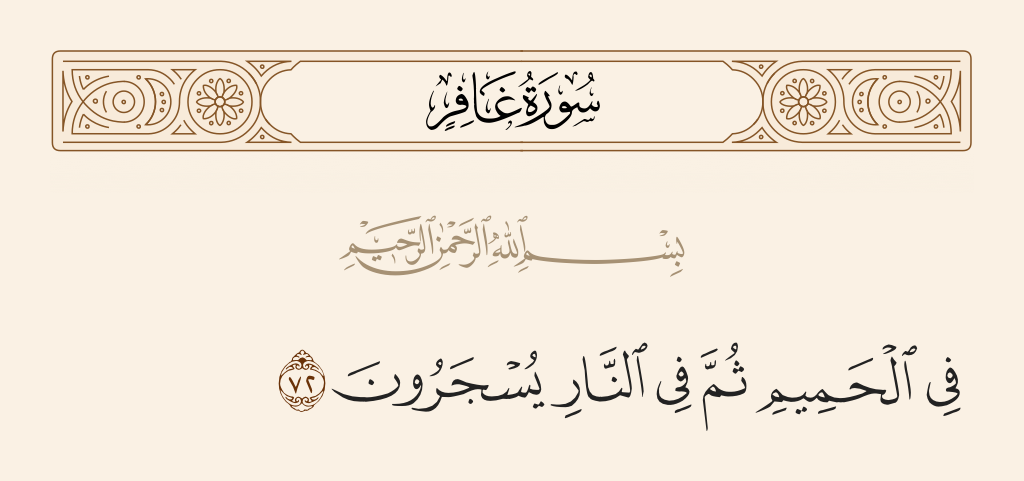 سُورَةُ غَافِرٍ
بِسْمِ ٱللَّهِ ٱلرَّحْمَٰنِ ٱلرَّحِيمِ
فِى ٱلْحَمِيمِ ثُمَّ فِى ٱلنَّارِ يُسْجَرُونَ ٧٢